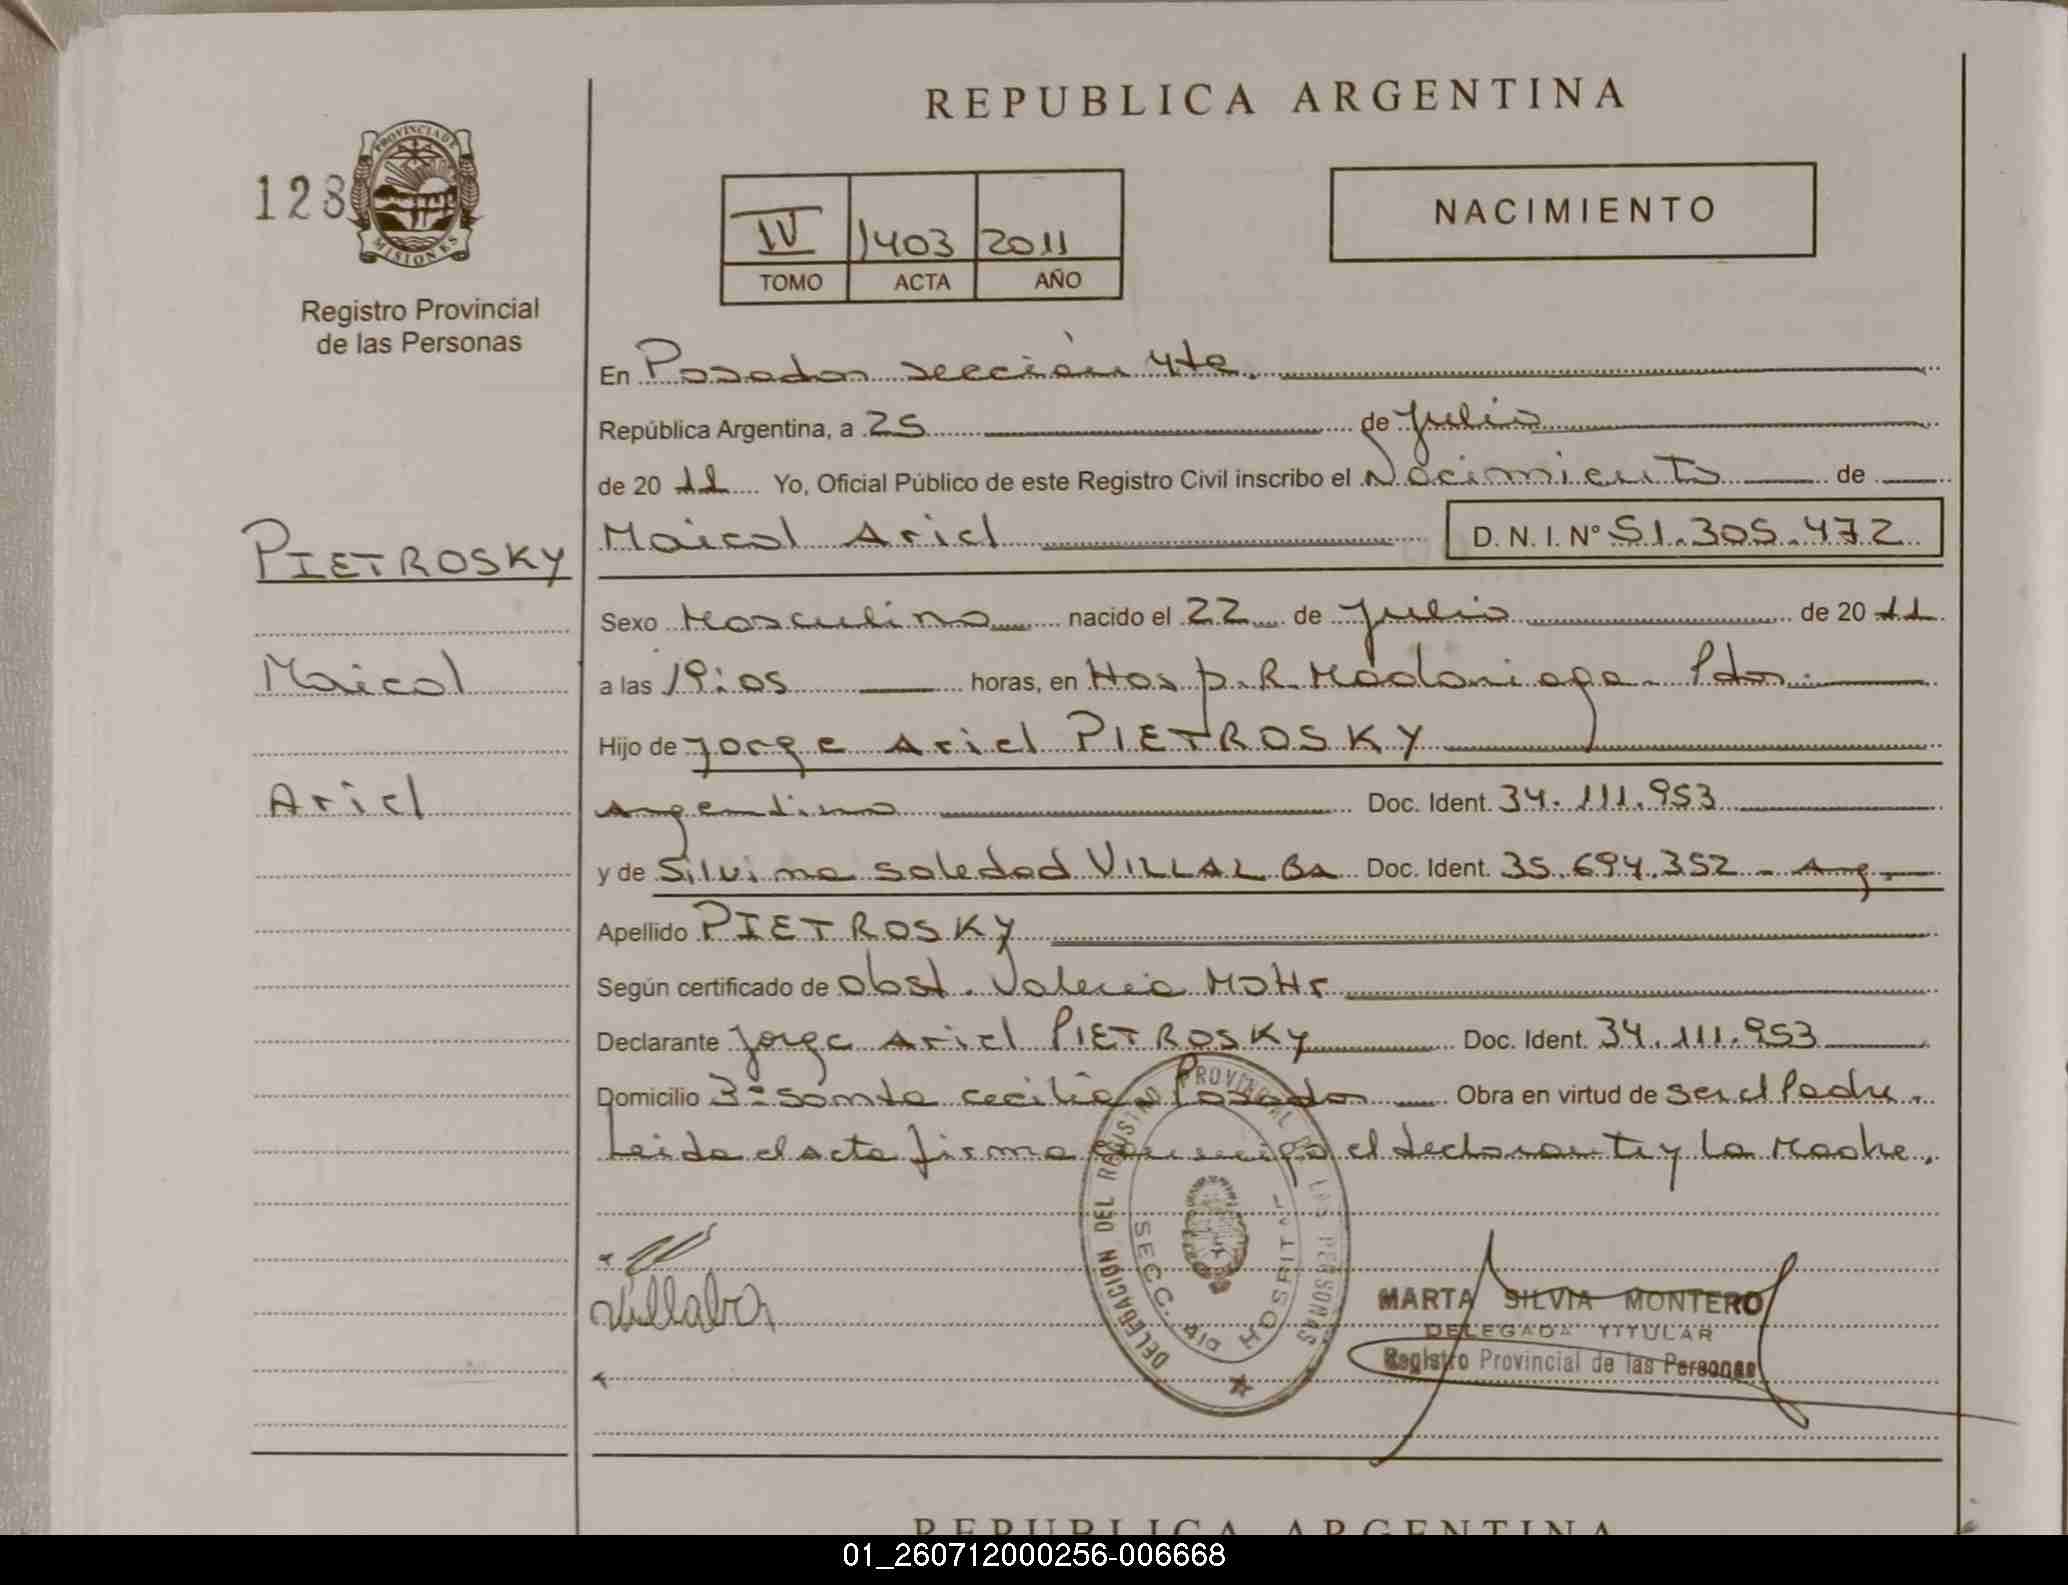 REPUBLICA ARGENTINA
128
PROVINCIA DE
MISIONES
Registro Provincial
de las Personas
IV 1403 2011
TOMO ACTA AÑO
NACIMIENTO
En Posadas sección 4ta.
República Argentina, a 25 de Julio
de 2011 Yo, Oficial Público de este Registro Civil inscribo el Nacimiento de
PIETROSKY
Maicol Ariel D.N.I. Nº 51.305.472
Sexo Masculino nacido el 22 de Julio de 2011
Maicol
a las 19:05 horas, en Hosp. R. Madariaga - Pdas.
Hijo de Jorge Ariel PIETROSKY
Ariel
Argentino Doc. Ident. 34.111.953
y de Silvina Soledad VILLALBA Doc. Ident. 35.694.352 - Arg.
Apellido PIETROSKY
Según certificado de Obst. Valeria MOHr
Declarante Jorge Ariel PIETROSKY Doc. Ident. 34.111.953
Domicilio Bº Santa Cecilia Posadas Obra en virtud de ser el Padre.
Leida el acta firma conmigo el declarante y la Madre.
DELEGACION DEL REGISTRO PROVINCIAL DE LAS PERSONAS
SECC. 4ta HOSPITAL
Villalba
MARTA SILVIA MONTERO
DELEGADA TITULAR
Registro Provincial de las Personas
REPUBLICA ARGENTINA
01_260712000256-006668